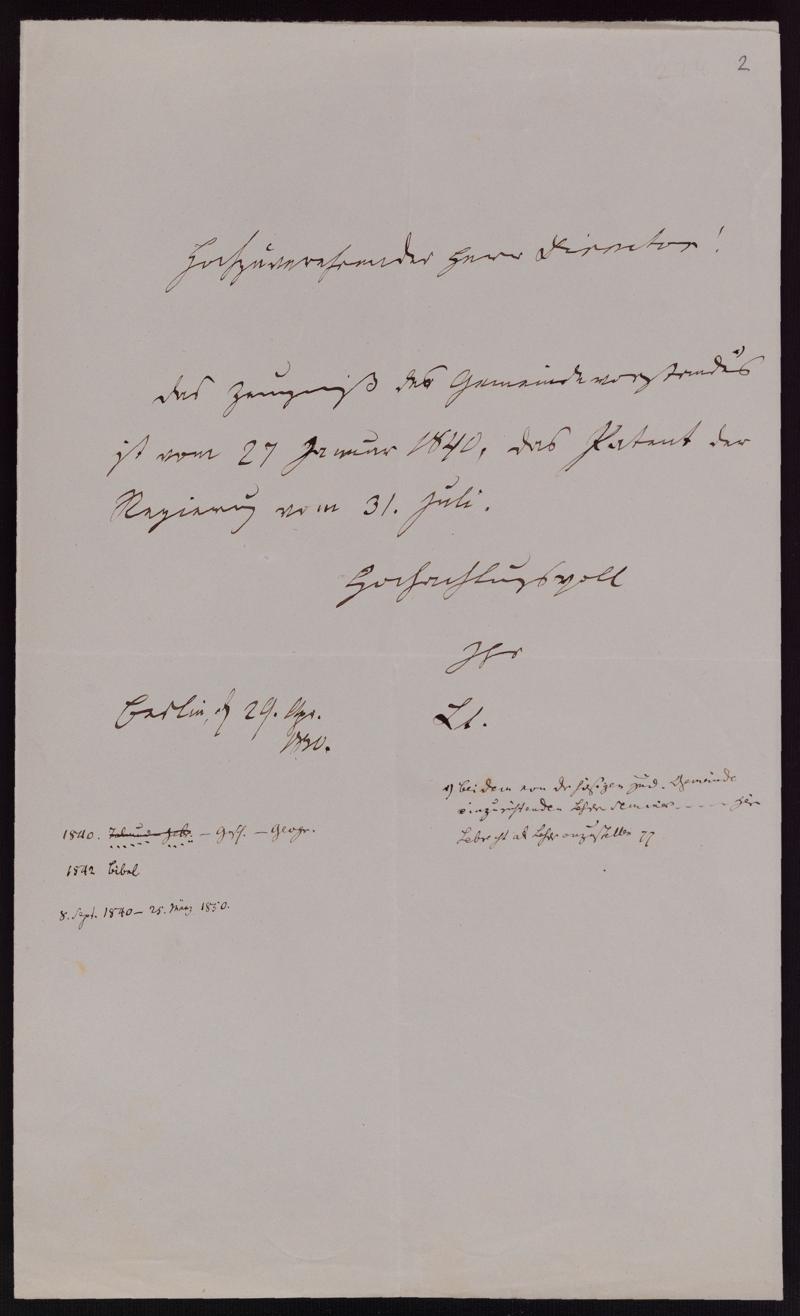 2
Hochzuverehrender Herr Director!
Das Zeugniß des Gemeindevorstandes
ist vom 27 Januar 1840, das Patent der
Regierung vom 31. Juli.
Hochachtungsvoll
Ihr
Lt.
Berlin, d 29. Apr.
1850.
1) bei dem von der hiesigen jüd. Gemeinde
einzurichtenden Lehrer Seminar - - - - Herr
Lebrecht als Lehrer anzustellen
1840. Talmud – Gesch. – Geogr.
1842 Bibel
8. Sept. 1840 – 25. März 1850.